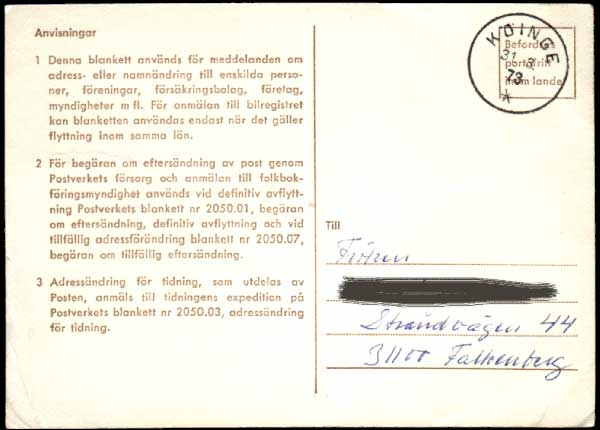 Anvisningar
1 Denna blankett används för meddelanden om
adress- eller namnändring till enskilda perso-
ner, föreningar, försäkringsbolag, företag,
myndigheter m fl. För anmälan till bilregistret
kan blanketten användas endast när det gäller
flyttning inom samma län.
2 För begäran om eftersändning av post genom
Postverkets försorg och anmälan till folkbok-
föringsmyndighet används vid definitiv avflytt-
ning Postverkets blankett nr 2050.01, begäran
om eftersändning, definitiv avflyttning och vid
tillfällig adressförändring blankett nr 2050.07,
begäran om tillfällig eftersändning.
3 Adressändring för tidning, som utdelas av
Posten, anmäls till tidningens expedition på
Postverkets blankett nr 2050.03, adressändring
för tidning.
KÖINGE
31 8.
73
Befordras
portofritt
inom landet
Till
Fröken
Strandvägen 44
31100 Falkenberg